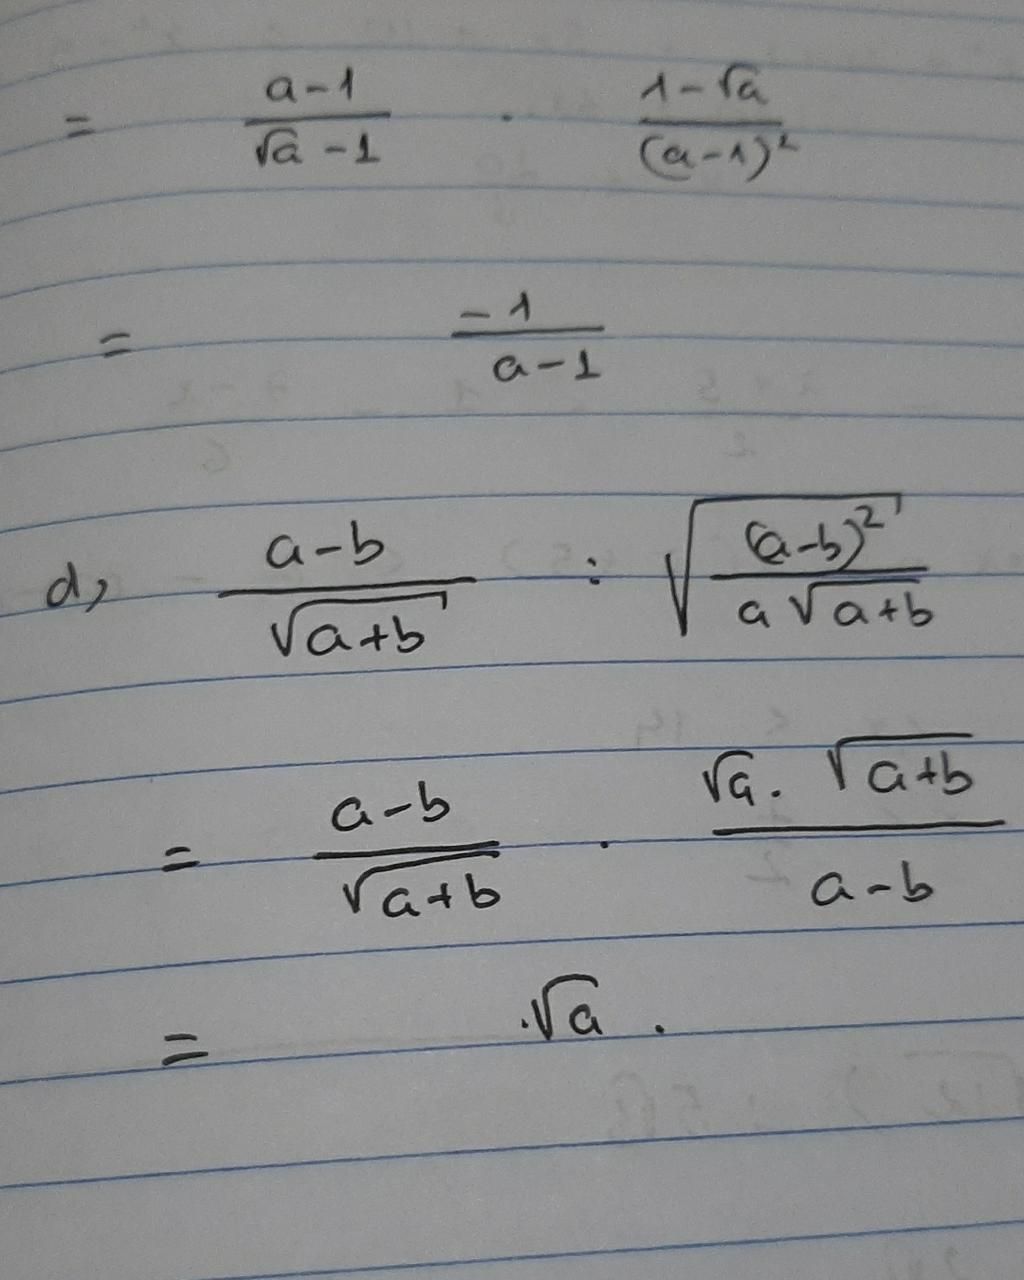 = \frac{a-1}{\sqrt{a}-1} \cdot \frac{1-\sqrt{a}}{(a-1)^2}
= \frac{-1}{a-1}
d, \frac{a-b}{\sqrt{a+b}} : \sqrt{\frac{(a-b)^2}{a\sqrt{a+b}}}
= \frac{a-b}{\sqrt{a+b}} \cdot \frac{\sqrt{a}.\sqrt{a+b}}{a-b}
= .\sqrt{a}.